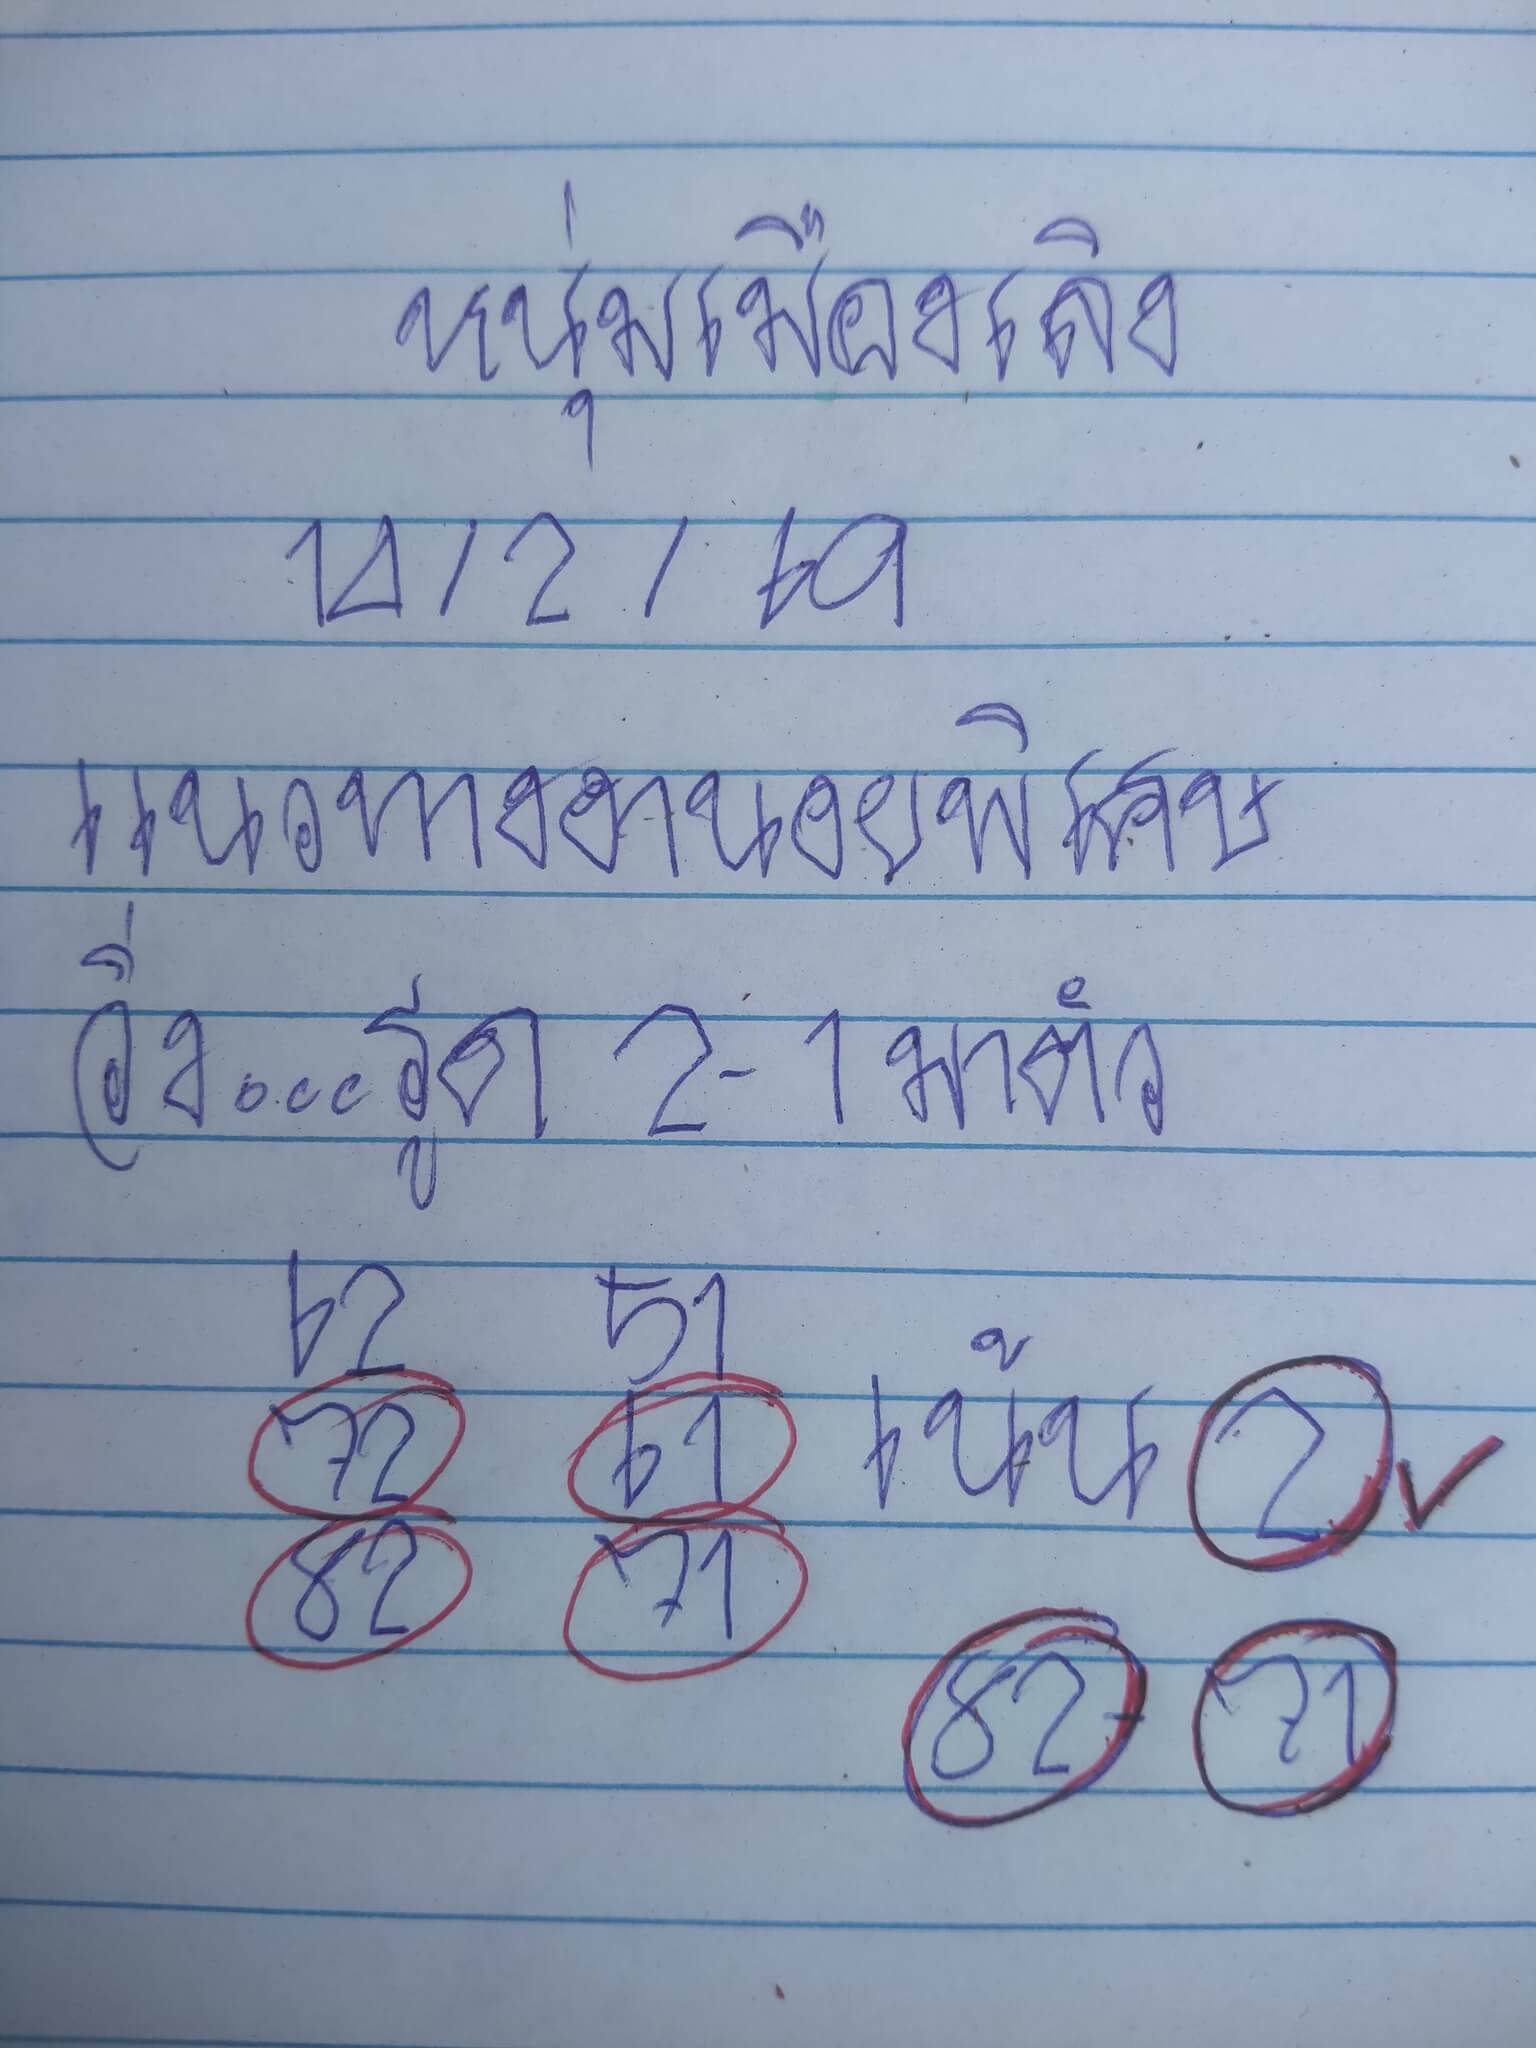 หนุ่มเมืองเลิง
14/2/69
แนวทางฮานอยพิเศษ
วิ่ง....รูด 2-1 มาตัว
62 51
72 61 เน้น 2
82 71
82-71